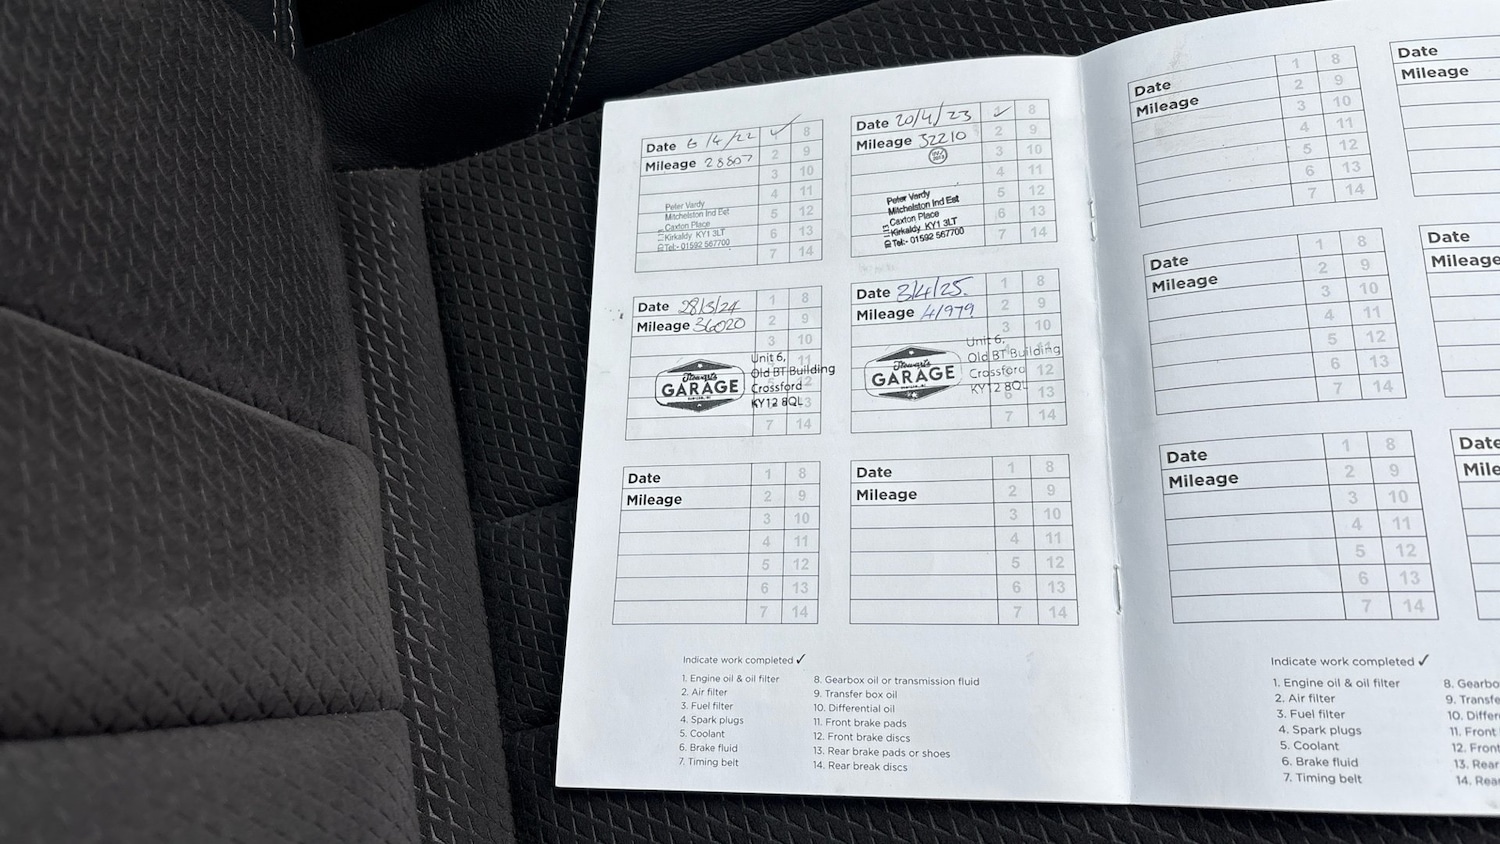 Date 6/4/22 ✓ 8
Mileage 28807 2 9
3 10
4 11
Peter Vardy
Mitchelston Ind Est 5 12
Caxton Place
Kirkaldy KY1 3LT 6 13
Tel:- 01592 567700 7 14
Date 20/4/23 1 ✓ 8
Mileage 32210 2 9
3 10
4 11
Peter Vardy 5 12
Mitchelston Ind Est
Caxton Place 6 13
Kirkaldy KY1 3LT
Tel:- 01592 567700 7 14
Date 28/3/24 1 8
Mileage 36020 2 9
3 10
Unit 6, 11
Stewart's Old BT Building 12
GARAGE Crossford
KY12 8QL 13
7 14
Date 3/4/25. 1 8
Mileage 41979 2 9
3 10
Unit 6,
Stewart's Old BT Building 11
GARAGE Crossford 12
KY12 8QL 6 13
7 14
Date 1 8
Mileage 2 9
3 10
4 11
5 12
6 13
7 14
Date 1 8
Mileage 2 9
3 10
4 11
5 12
6 13
7 14
Indicate work completed ✓
1. Engine oil & oil filter
2. Air filter
3. Fuel filter
4. Spark plugs
5. Coolant
6. Brake fluid
7. Timing belt
8. Gearbox oil or transmission fluid
9. Transfer box oil
10. Differential oil
11. Front brake pads
12. Front brake discs
13. Rear brake pads or shoes
14. Rear break discs
Date 1 8
Mileage 2 9
3 10
4 11
5 12
6 13
7 14
Date
Mileage
Date 1 8
Mileage 2 9
3 10
4 11
5 12
6 13
7 14
Date
Mileage
Date 1 8
Mileage 2 9
3 10
4 11
5 12
6 13
7 14
Date
Mile
Indicate work completed ✓
1. Engine oil & oil filter
2. Air filter
3. Fuel filter
4. Spark plugs
5. Coolant
6. Brake fluid
7. Timing belt
8. Gearbo
9. Transfe
10. Differe
11. Front
12. Front
13. Rear
14. Rea